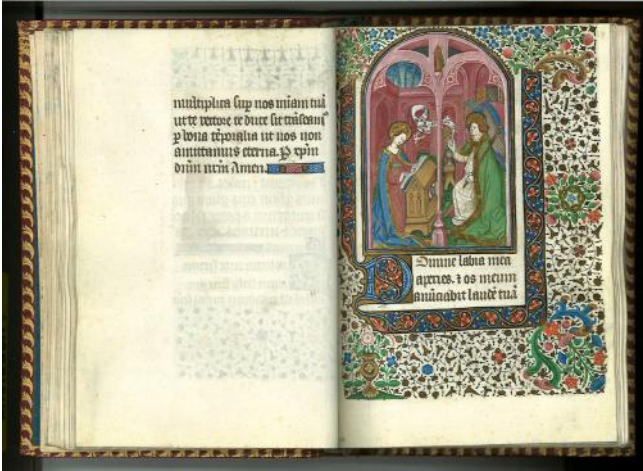 multiplica sup nos miam tuā
ut te rectore te duce sic trāseam⁹
p bona tēporalia ut nos non
amittamus eterna. P xp̄m
dn̄m nr̄m Amen.
Domine labia mea
aperies. et os meum
anūciabit laudē tuā